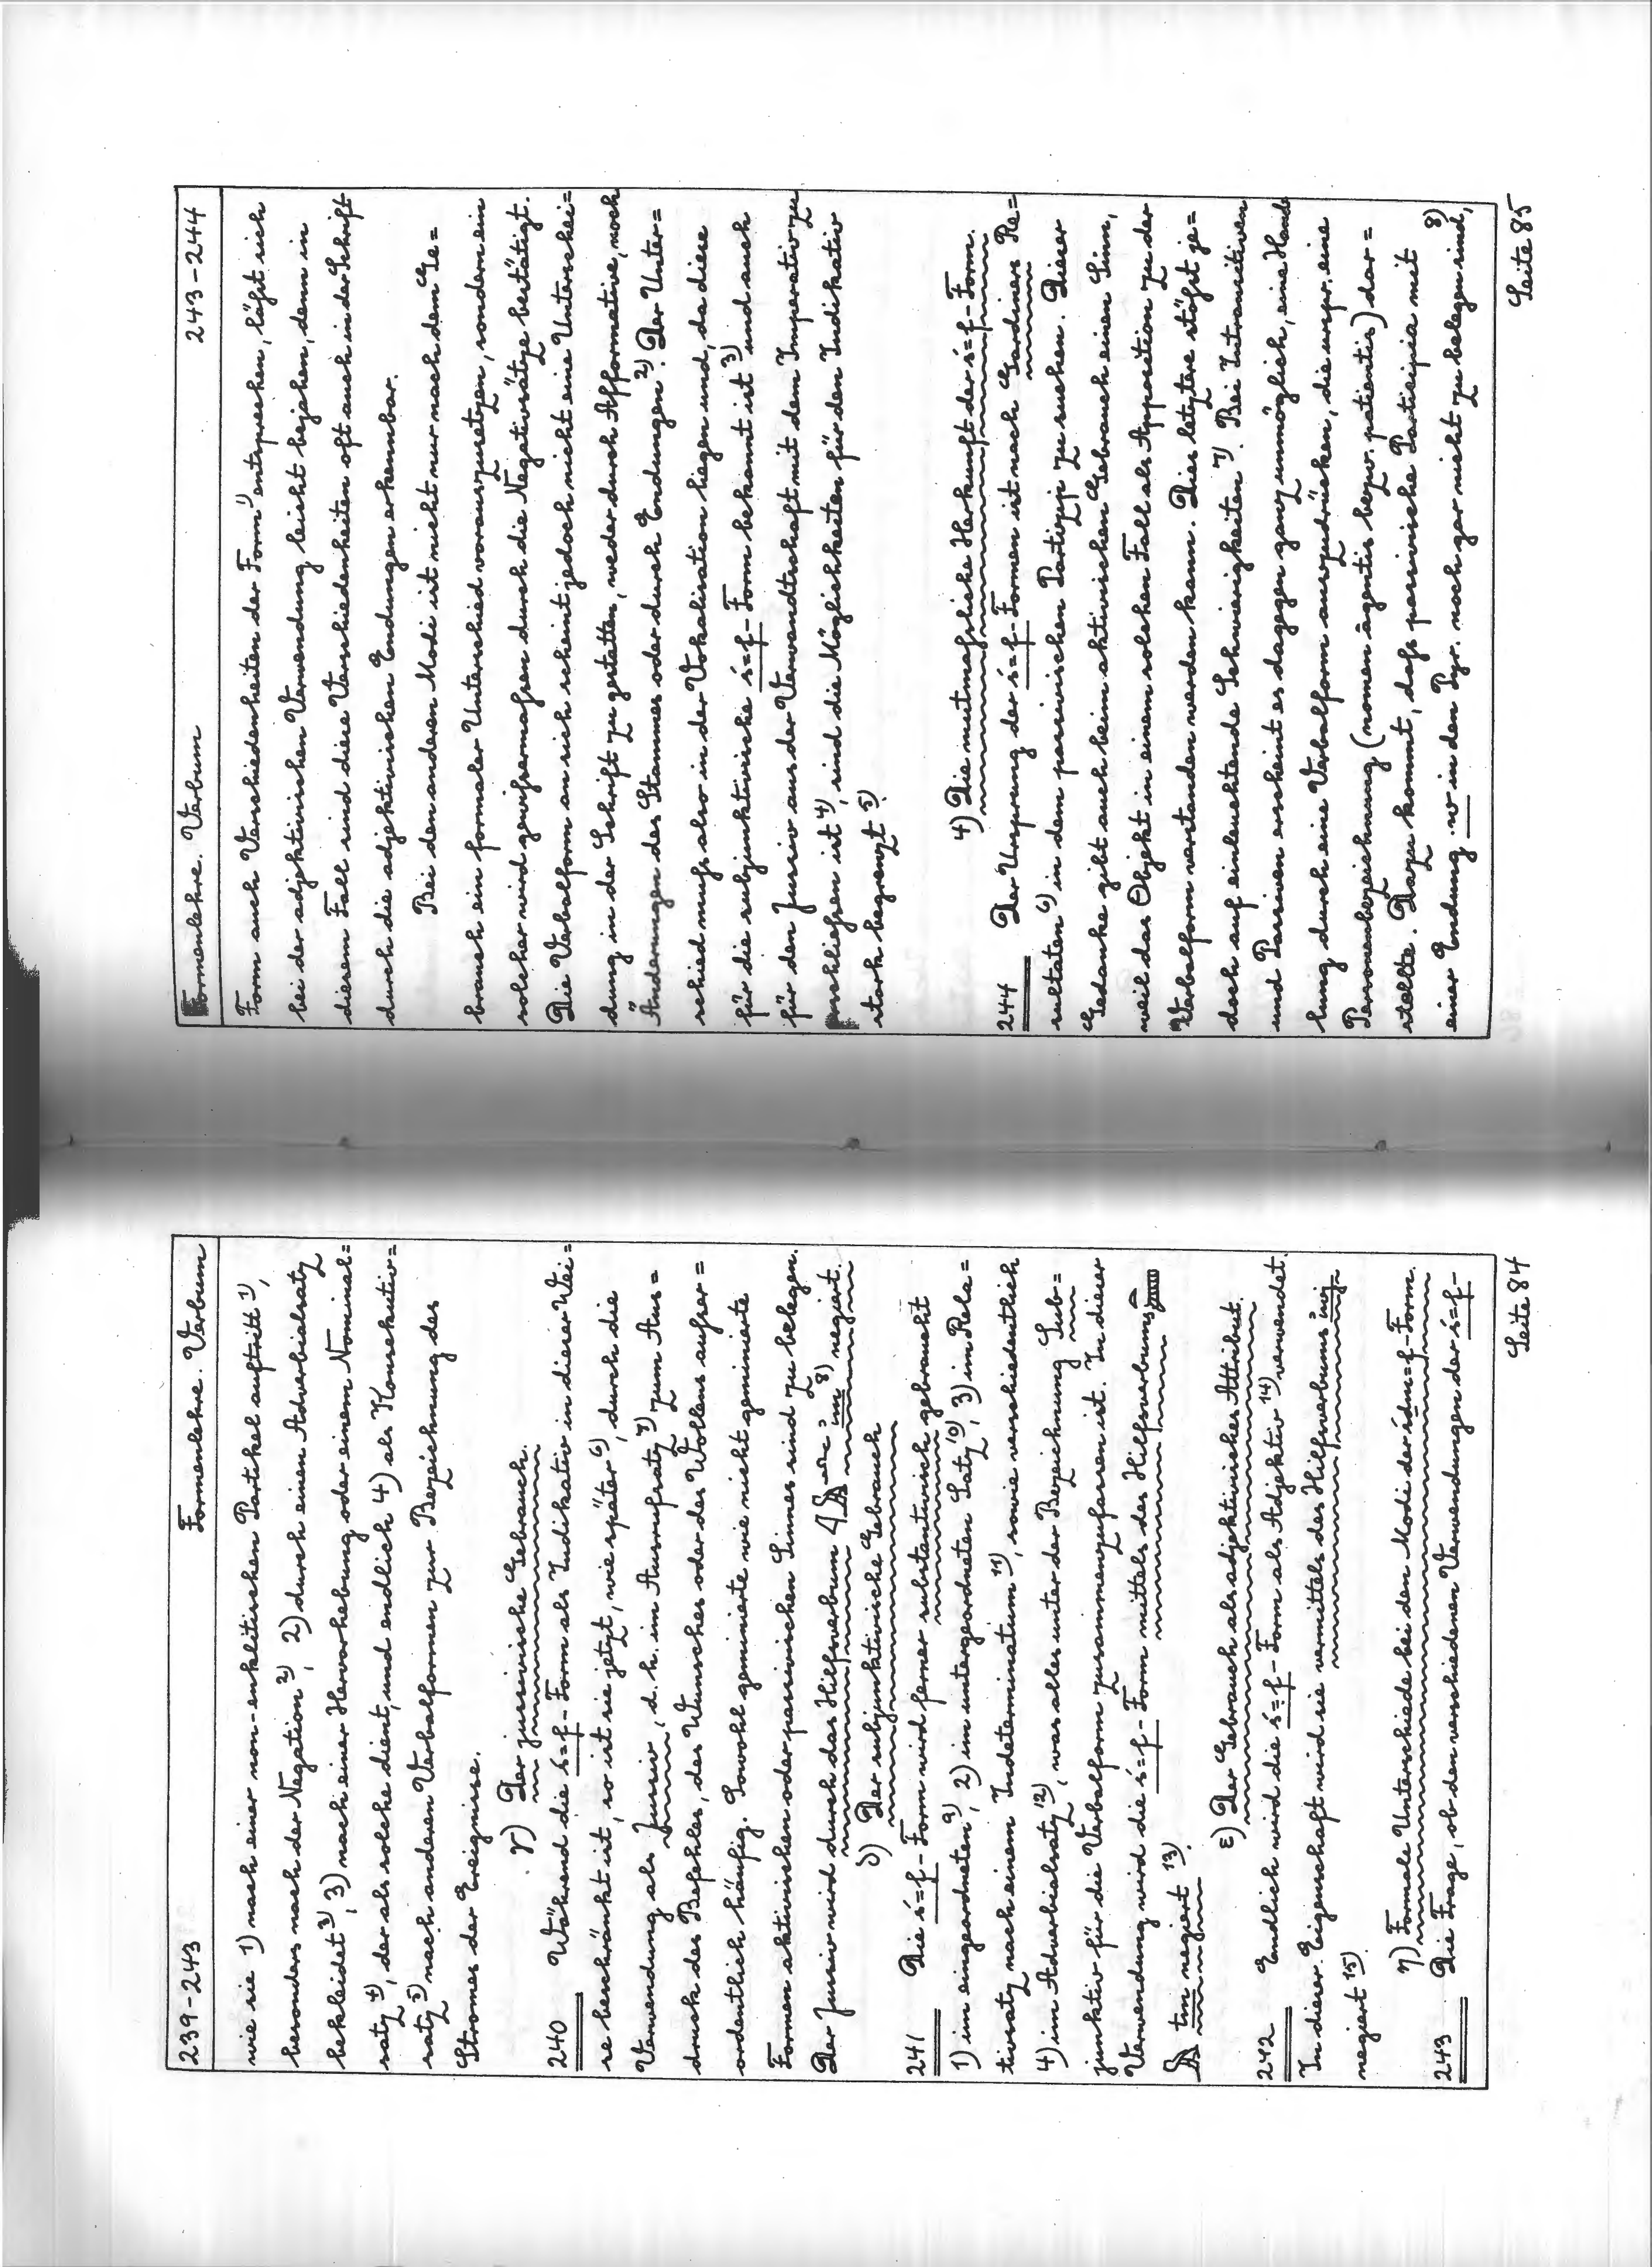 239-243 Formenlehre. Verbum
wie sie 1) nach einer non-enklitischen Partikel auftritt 1),
besonders nach der Negation 2), 2) durch einen Adverbialsatz
bekleidet 3), 3) nach einer Hervorhebung oder einem Nominal=
satz 4), der als solche dient, und endlich 4) als Konsekutiv=
satz 5) nach anderen Verbalformen zur Bezeichnung des
Stromes der Ereignisse.
γ) Der jussivische Gebrauch.
240 Während die ś=f-Form als Indikativ in dieser Wei=
se beschränkt ist, so ist sie jetzt, wie später 6), durch die
Verwendung als Jussiv, d.h. im Ausrufsatz 7) zum Aus=
druck des Befehles, des Wunsches oder des Wollens außer=
ordentlich häufig. Sowohl geminierte wie nicht geminierte
Formen aktivischen oder passivischen Sinnes sind zu belegen.
Der Jussiv wird durch das Hilfsverbum im 8) negiert.
δ) Der subjunktivische Gebrauch
241 Die ś=f-Form wird ferner substantivisch gebraucht
1) im eingeordneten 9), 2) im untergeordneten Satz 10), 3) im Rela=
tivsatz nach einem Indeterminatum 11), sowie verschiedentlich
4) im Adverbialsatz 12), was alles unter der Bezeichnung Sub=
junktiv für die Verbalform zusammenzufassen ist. In dieser
Verwendung wird die ś=f-Form mittels des Hilfsverbums
tm negiert 13).
ε) Der Gebrauch als adjektivisches Attribut.
242 Endlich wird die ś=f-Form als Adjektiv 14) verwendet.
In dieser Eigenschaft wird sie vermittels des Hilfsverbums
negiert 15).
η) Formale Unterschiede bei den Modi der śdm=f-Form.
243 Die Frage, ob den verschiedenen Verwendungen der ś=f-
Seite 84
Formenlehre. Verbum 243-244
Form auch Verschiedenheiten der Form 1) entsprechen, läßt sich
bei der adjektivischen Verwendung leicht bejahen, denn in
diesem Fall sind diese Verschiedenheiten oft auch in der Schrift
durch die adjektivischen Endungen erkennbar.
Bei den anderen Modi ist nicht nur nach dem Ge=
brauch ein formaler Unterschied vorauszusetzen, sondern ein
solcher wird gewissermaßen durch die Negativsätze bestätigt.
Die Verbalform an sich scheint jedoch nicht eine Unterschei=
dung in der Schrift zu gestatten, weder durch Afformative, noch
Änderungen des Stammes oder durch Endungen 2). Der Unter=
schied muß also in der Vokalisation liegen und, da diese
für die subjunktivische ś=f-Form bekannt ist 3) und auch
für den Jussiv aus der Verwandtschaft mit dem Imperativ zu
erschließen ist 4), sind die Möglichkeiten für den Indikativ
stark begrenzt 5).
4) Die mutmaßliche Herkunft der ś=f-Form.
244 Der Ursprung der ś=f-Formen ist nach Gardiners Re=
sultaten 6) in dem passivischen Partizip zu suchen. Dieser
Gedanke gibt auch beim aktivischen Gebrauch einen Sinn,
weil das Objekt in einem solchen Fall als Apposition zu der
Verbalform verstanden werden kann. Dies letztere stößt je=
doch auf einleuchtende Schwierigkeiten 7). Bei Intransitiven
und Passiven erscheint es dagegen ganz unmöglich, eine Hand=
lung durch eine Verbalform auszudrücken, die urspr. eine
Personenbezeichnung (nomen agentis bezw. patientis) dar=
stellte. Dazu kommt, dass passivische Participia mit
einer Endung .w in den Pyr. noch gar nicht zu belegen sind, 8)
Seite 85